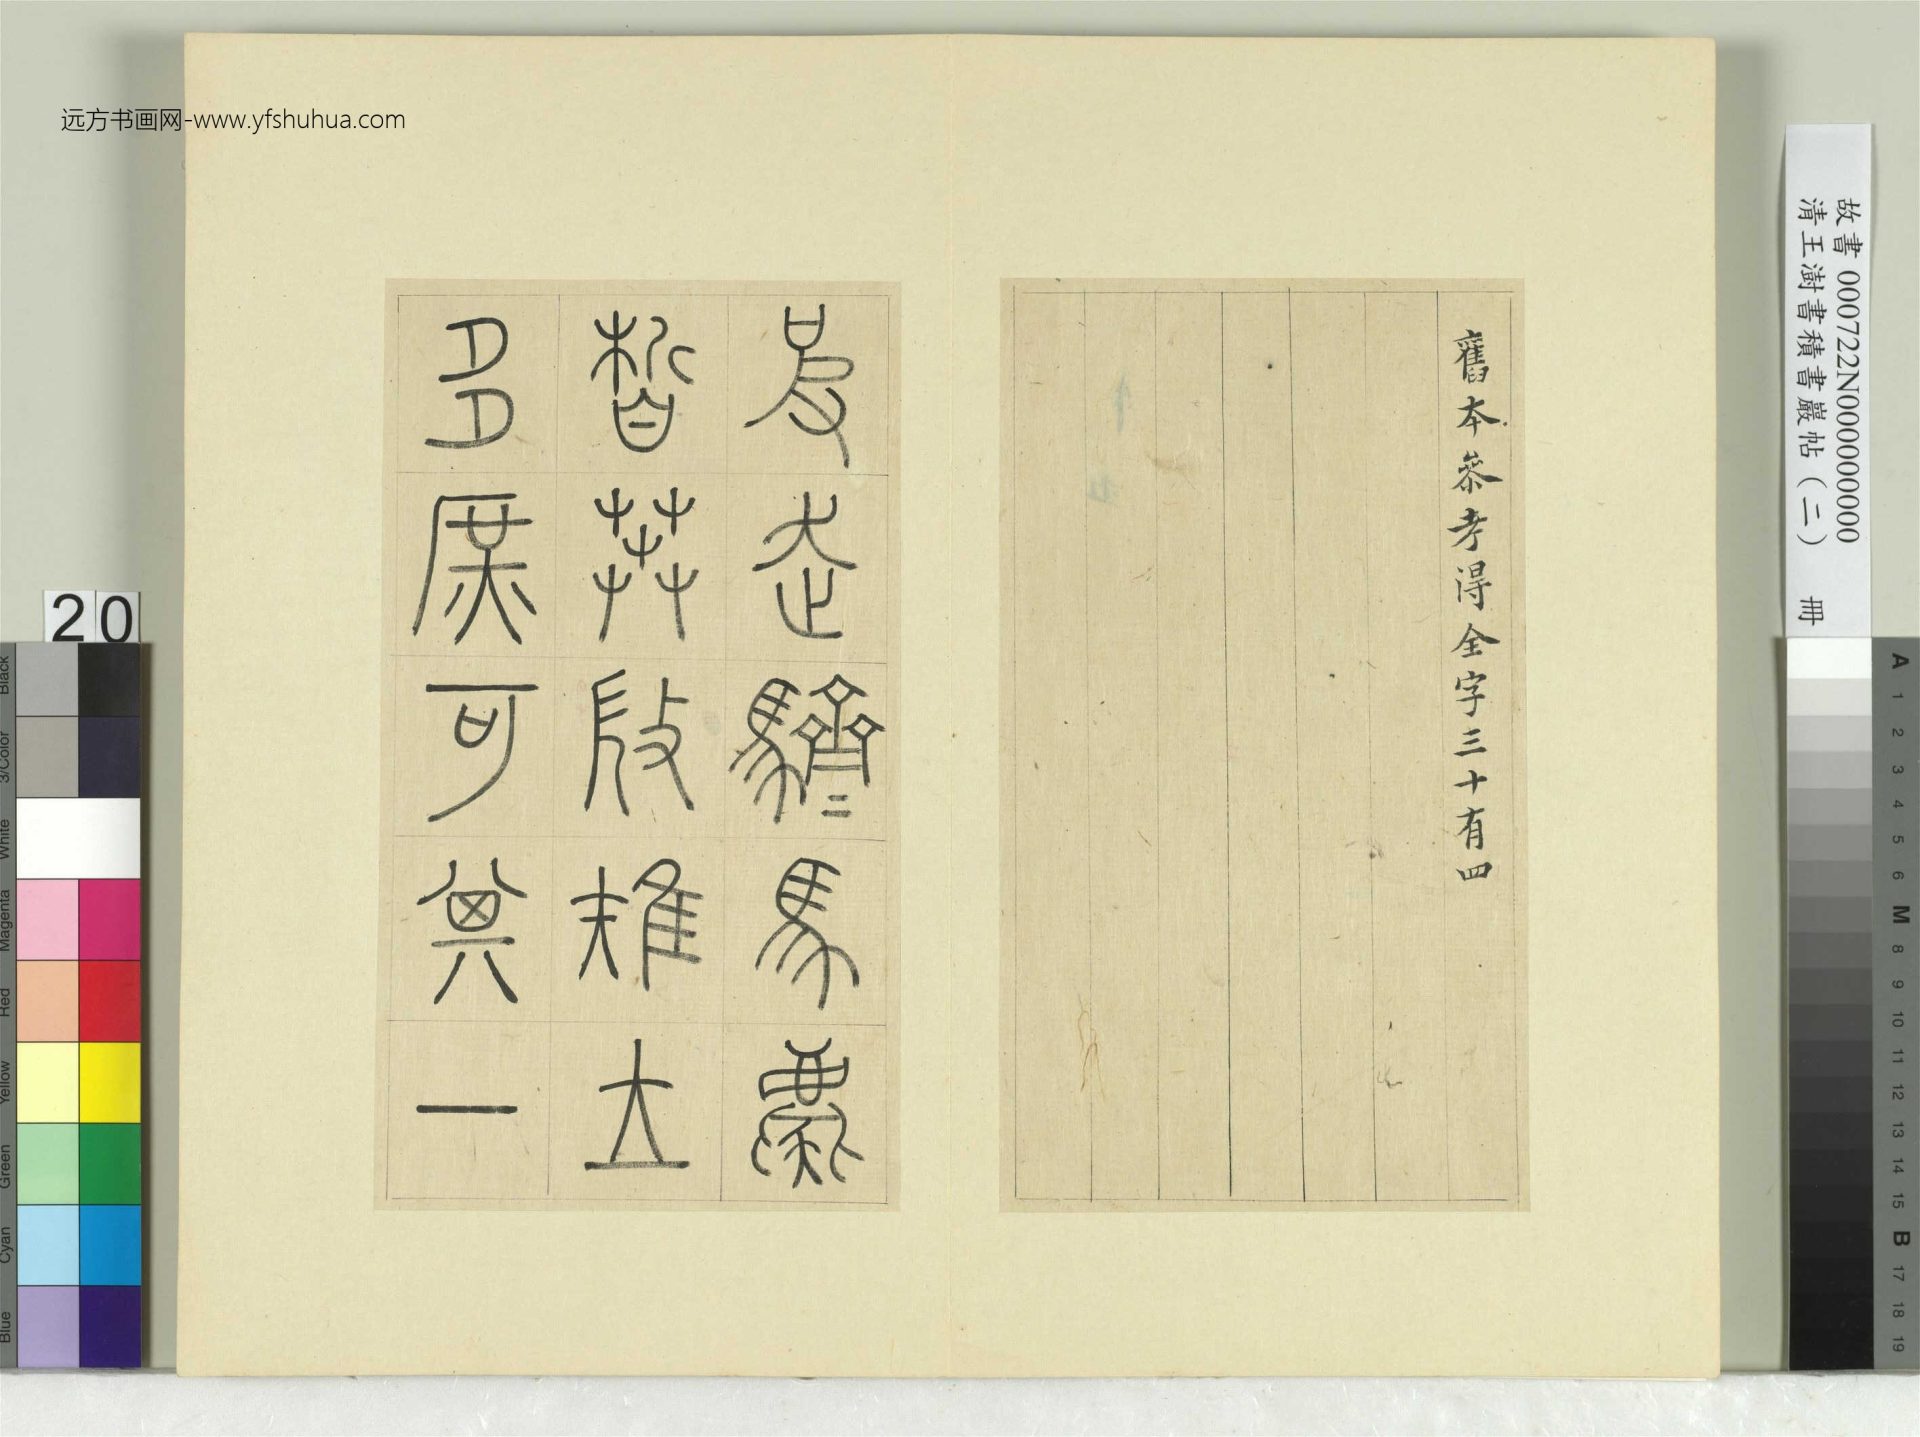 远方书画网-www.yfshuhua.com
故書 000722N000000000
清王澍書積書巖帖（二） 冊
舊本叅考得全字三十有四
皮走馬薦
皙雉立
多庶可其一
20
Black
3/Color
White
Magenta
Red
Yellow
Green
Cyan
Blue
A
1
2
3
4
5
6
M
8
9
10
11
12
13
14
15
B
17
18
19